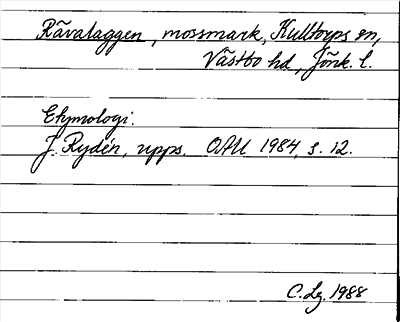 Rävalaggen, mossmark, Kulltorps sn,
Västbo hd, Jönk. l.
Etymologi.
J. Rydén, upps. OAU 1984, s. 12.
C. Lg. 1988